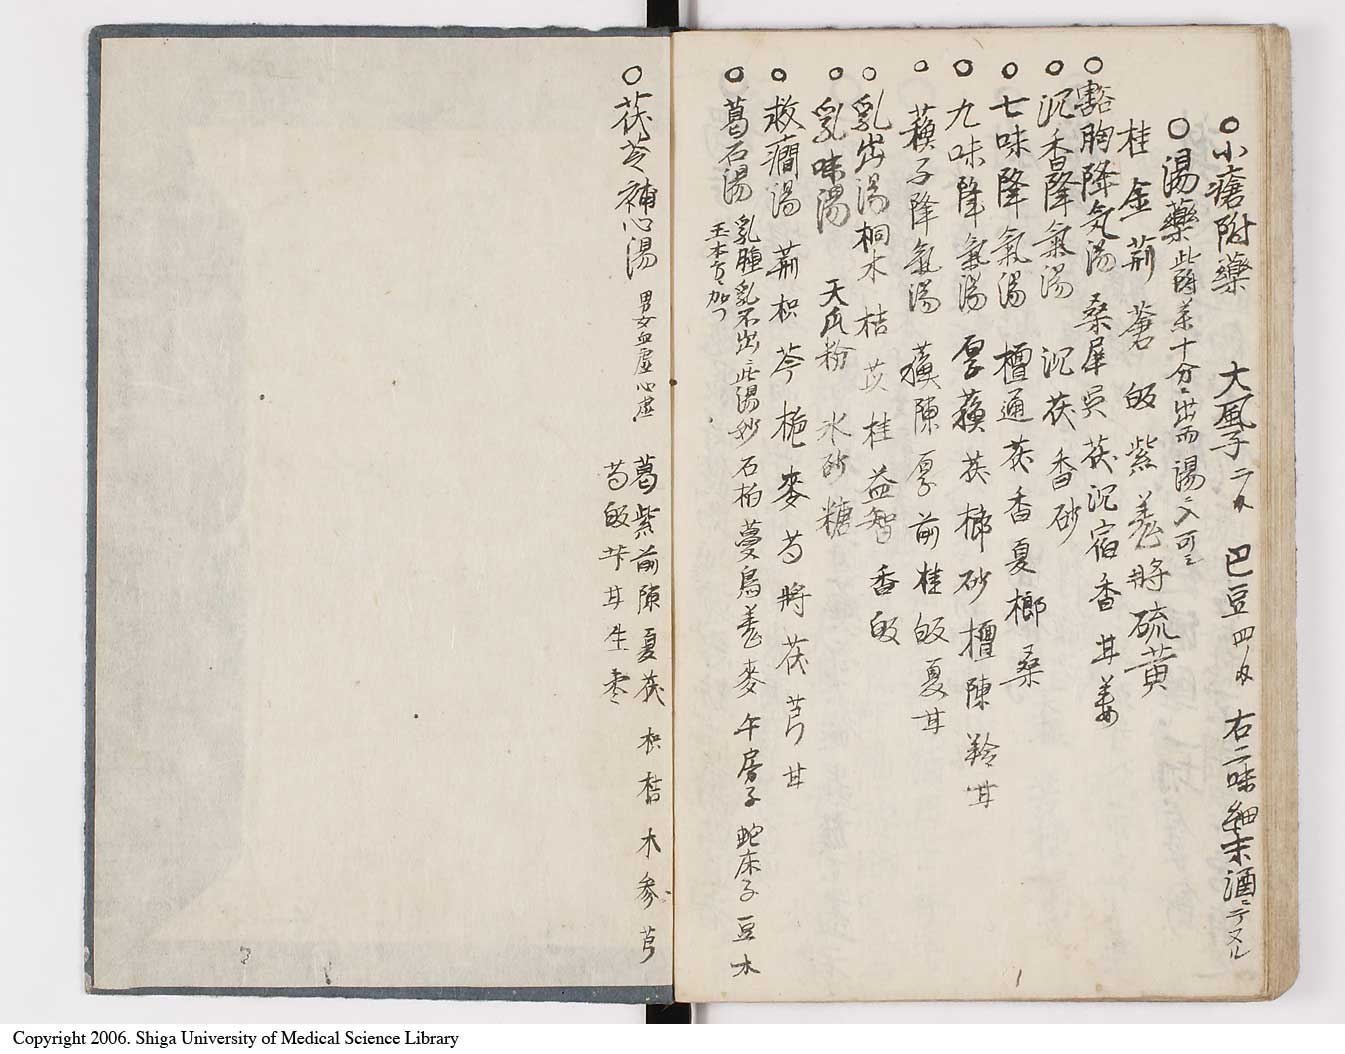 ○小瘡附藥　大風子 二匁　巴豆 四匁　右二味細末酒ニテヌル
○湯藥 此附薬十分ニ出而湯ニ入可之
桂 金 荊 蒼 皈 紫 羗 將 硫黄
○豁胸降気湯　桑 犀 呉 茯 沉 宿 香 甘 姜
○沉香降氣湯　沉 茯 香 砂
○七味降氣湯　檀 通 茯 香 夏 榔 桑
○九味降氣湯　厚 蘓 茯 榔 砂 檀 陳 羚 甘
○蘓子降氣湯　蘓 陳 厚 前 桂 皈 夏 甘
○乳出湯　桐 木 桔 苡 桂 益智 香 皈
○乳味湯　天瓜粉 氷砂糖
○救癇湯　荊 枳 芩 梔 麥 芍 將 茯 芎 甘
○葛石湯 乳腫乳不出ニ此湯妙 石 柏 蔓 烏 羗 麥 午房子 蛇床子 豆 木
玉本ニ加フ
○茯苓補心湯 男女血虚心虚 葛 紫 前 陳 夏 茯 枳 桔 木 參 芎
芍 皈 芐 甘 生 枣
Copyright 2006. Shiga University of Medical Science Library